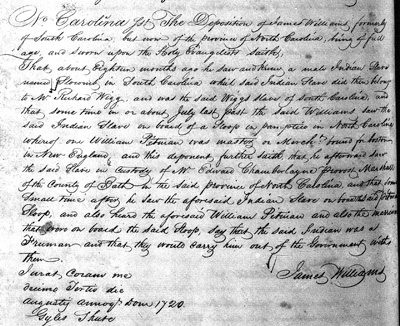 No Carolina Sst. The Deposition of James Williams, formerly
of South Carolina but now of the province of North Carolina being of full
age, and sworn upon the Holy Evangelists saith,
That about Eighteen months ago he saw and knew a male Indian Slave
named in South Carolina which said Indian Slave did then belong
to Mr Richard Wigg, and was the said Wiggs slave of South Carolina, and
that some time in or about July last past the said Williams saw the
said Indian Slave on board of a Sloop in in North Carolina
whereof one William Pitman was master or March't bound for boston
in New England, and this deponent further saith that he afterward saw
the said Slave in Custody of Mr Edward Chamberlayne provost Marshall
of the County of Bath in the said province of North Carolina and that some
Small time after he saw the aforesaid Indian Slave on board the said
Sloop, and also heard the aforesaid William Pitman and also the
that were on board the said Sloop, say that the said Indian was a
Freeman and that they would carry him out of the Government with
them.
James Williams
Jurat Coram me
decimo Tertio die
Augusty annoq. Dom 1720.
Gyles Shute